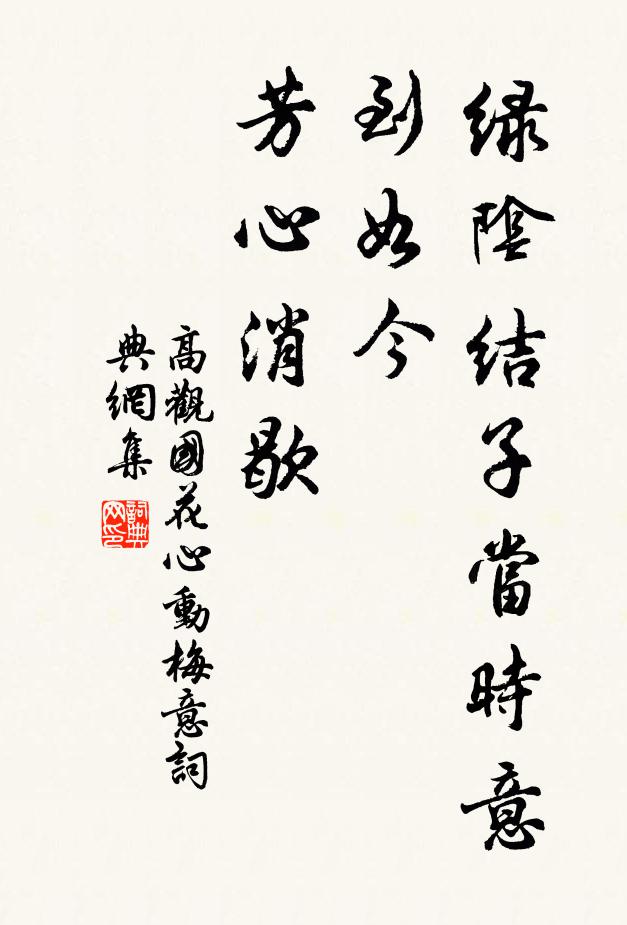 緑陰結子當時意
到如今
芳心消歇
高觀國花心動梅意詞
典網集
詞典網印